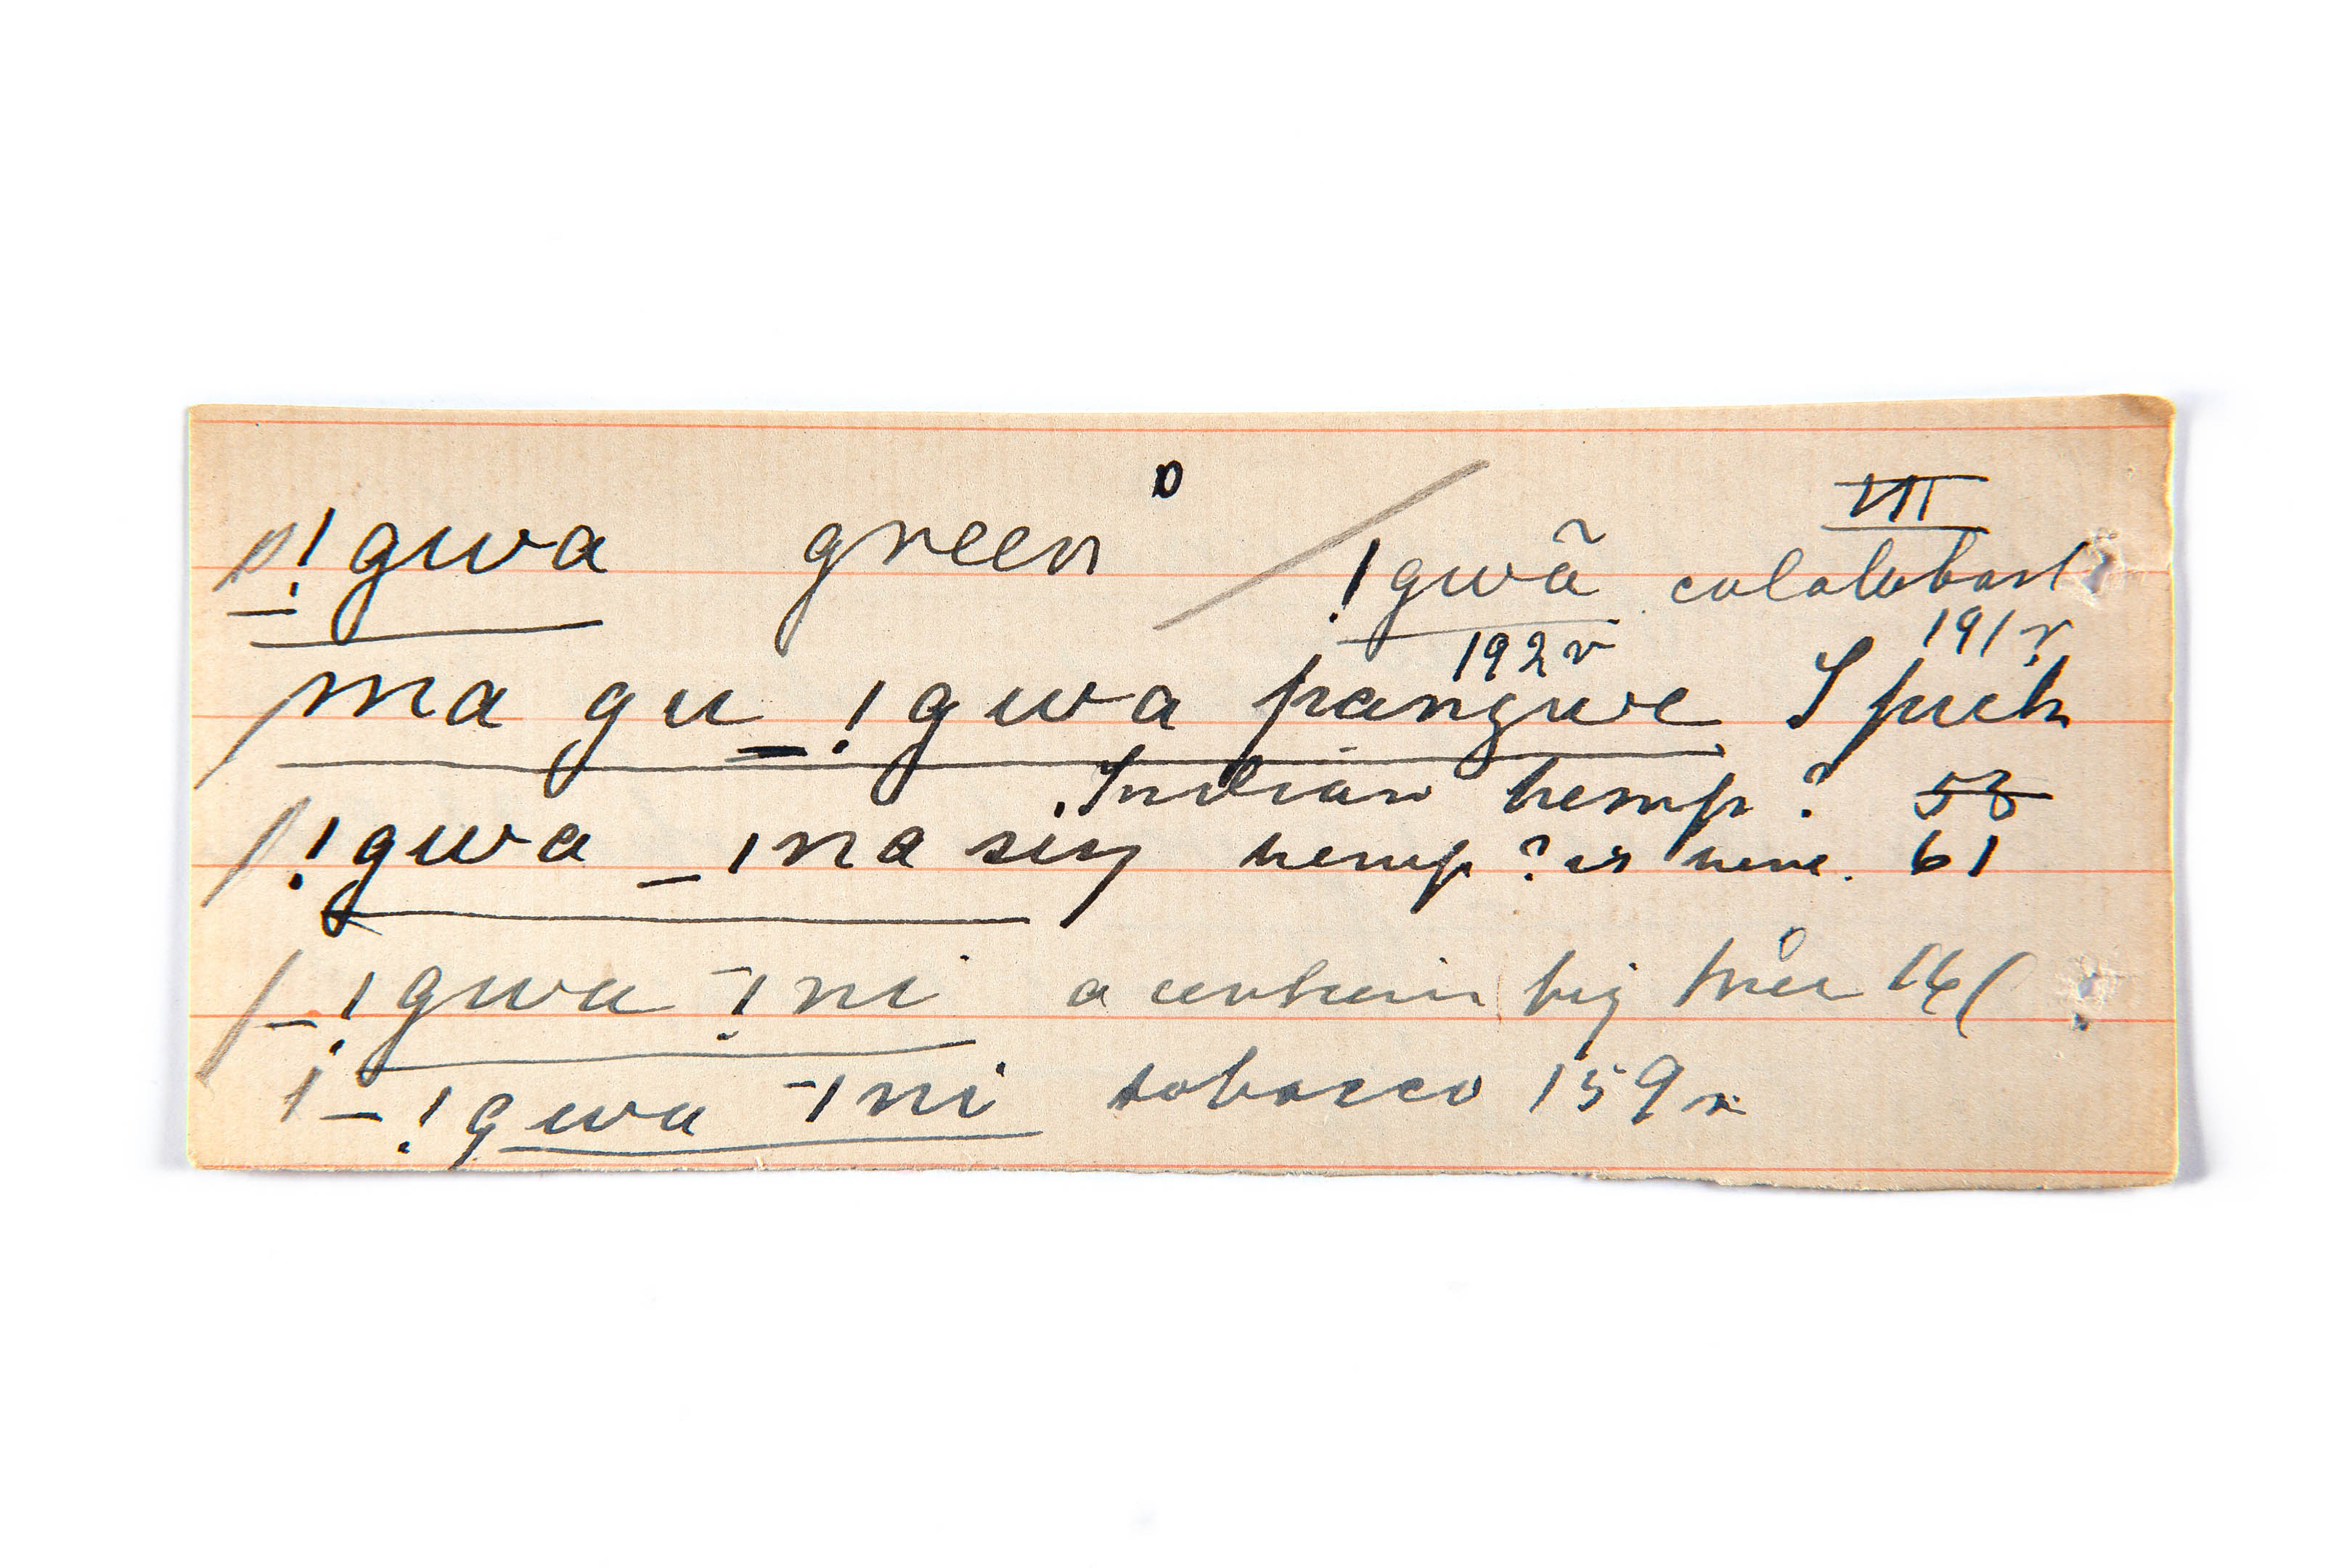 _!gwa green
VII
!gwã calabash
192 v 191 r
ma gu _!gwa pangwe I pick
Indian hemp? 53
!gwa _ǀna siŋ hemp? is here. 61
_!gwa ¯!ni a certain big tree 161
_!gwa ¯ǀni tobacco 159 r